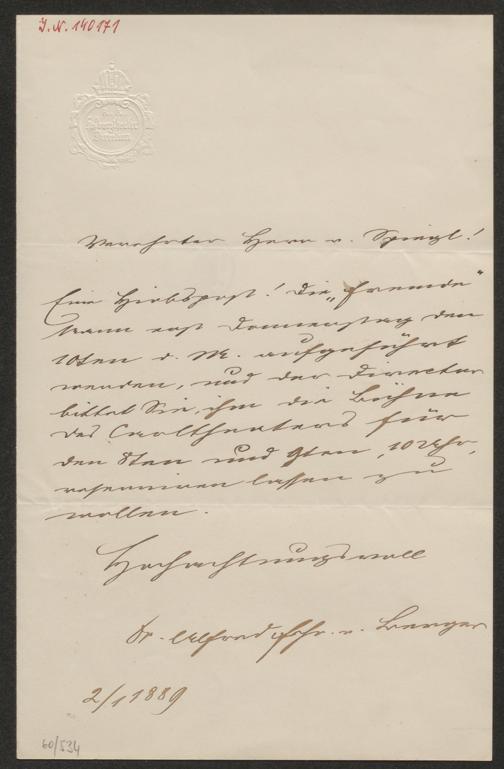 J.N. 140171
Verehrter Herr v. Spiegl!
Eine Hiobspost! Die „Fremde"
kann erst Donnerstag den
10ten d. M. aufgeführt
werden, und der Director
bittet Sie, ihm die Bühne
des Carltheaters für
den 8ten und 9ten, 10 Uhr,
reserviren lassen zu
wollen.
Hochachtungsvoll
Dr. Alfred Frhr. v. Berger
2/1 1889
60/534